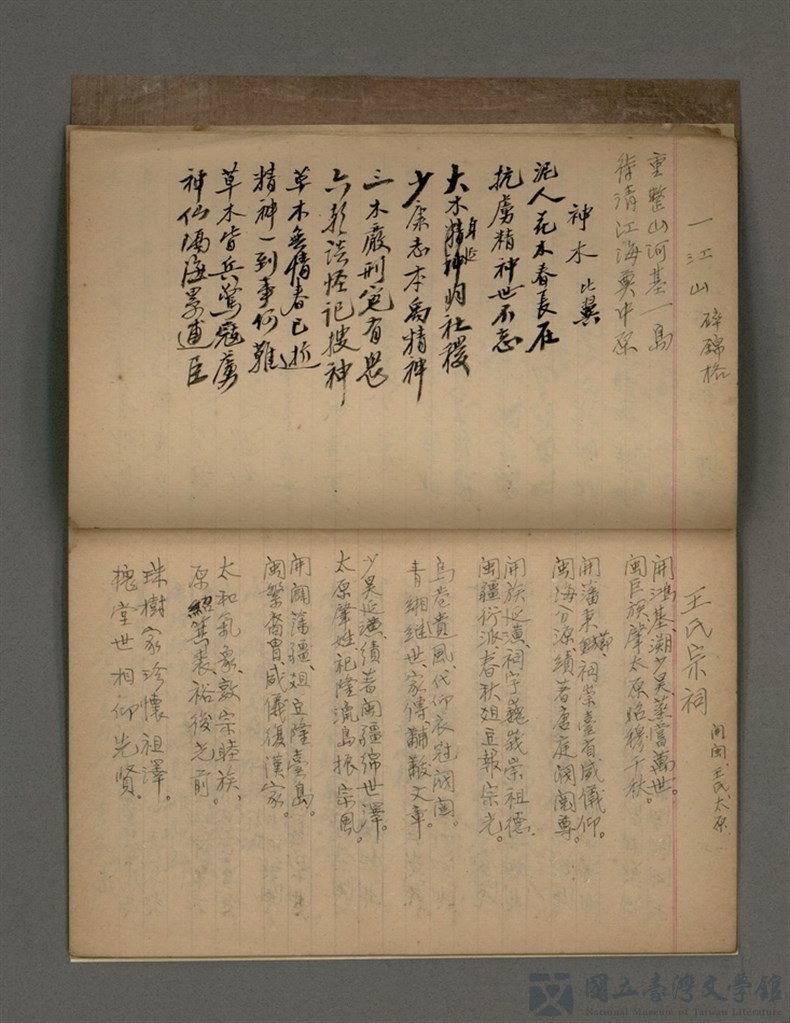 一江山 碎錦格
重整山河基一島
待清江海奠中原
神木 比翼
泥人花木春長在
抗虜精神世不忘
大木身近歸社稷
少康志本為精神
三木嚴刑宦有畏
六郭談怪記搜神
草木無情春已近
精神一到事何難
草木皆兵驚寇虜
神仙隔海累逋臣
王氏宗祠 開閩王氏太原
開鴻基、溯少昊、蒸嘗萬世。
閩巨族、肇太原、昭穆千秋。
開藩東、祠崇臺省威儀仰。
閩海分源、績著唐庭閥閱尊。
開族延潢、祠宇巍峩崇祖德、
閩疆衍派、春秋俎豆報宗光。
烏巷遺風、代仰衣冠閥閱。
青緗継世、家傳黼黻文章。
少昊延潢、績著閩疆綿世澤。
太原肇姓、祀隆流島振宗風。
開閩藩疆、俎豆隆臺島。
閩繁裔胄、威儀復漢家。
太和氣象、敦宗睦族、
原紹箕裘、裕後光前。
珠樹家珍懷祖澤。
槐堂世相仰先賢。
國立臺灣文學館
National Museum of Taiwan Literature